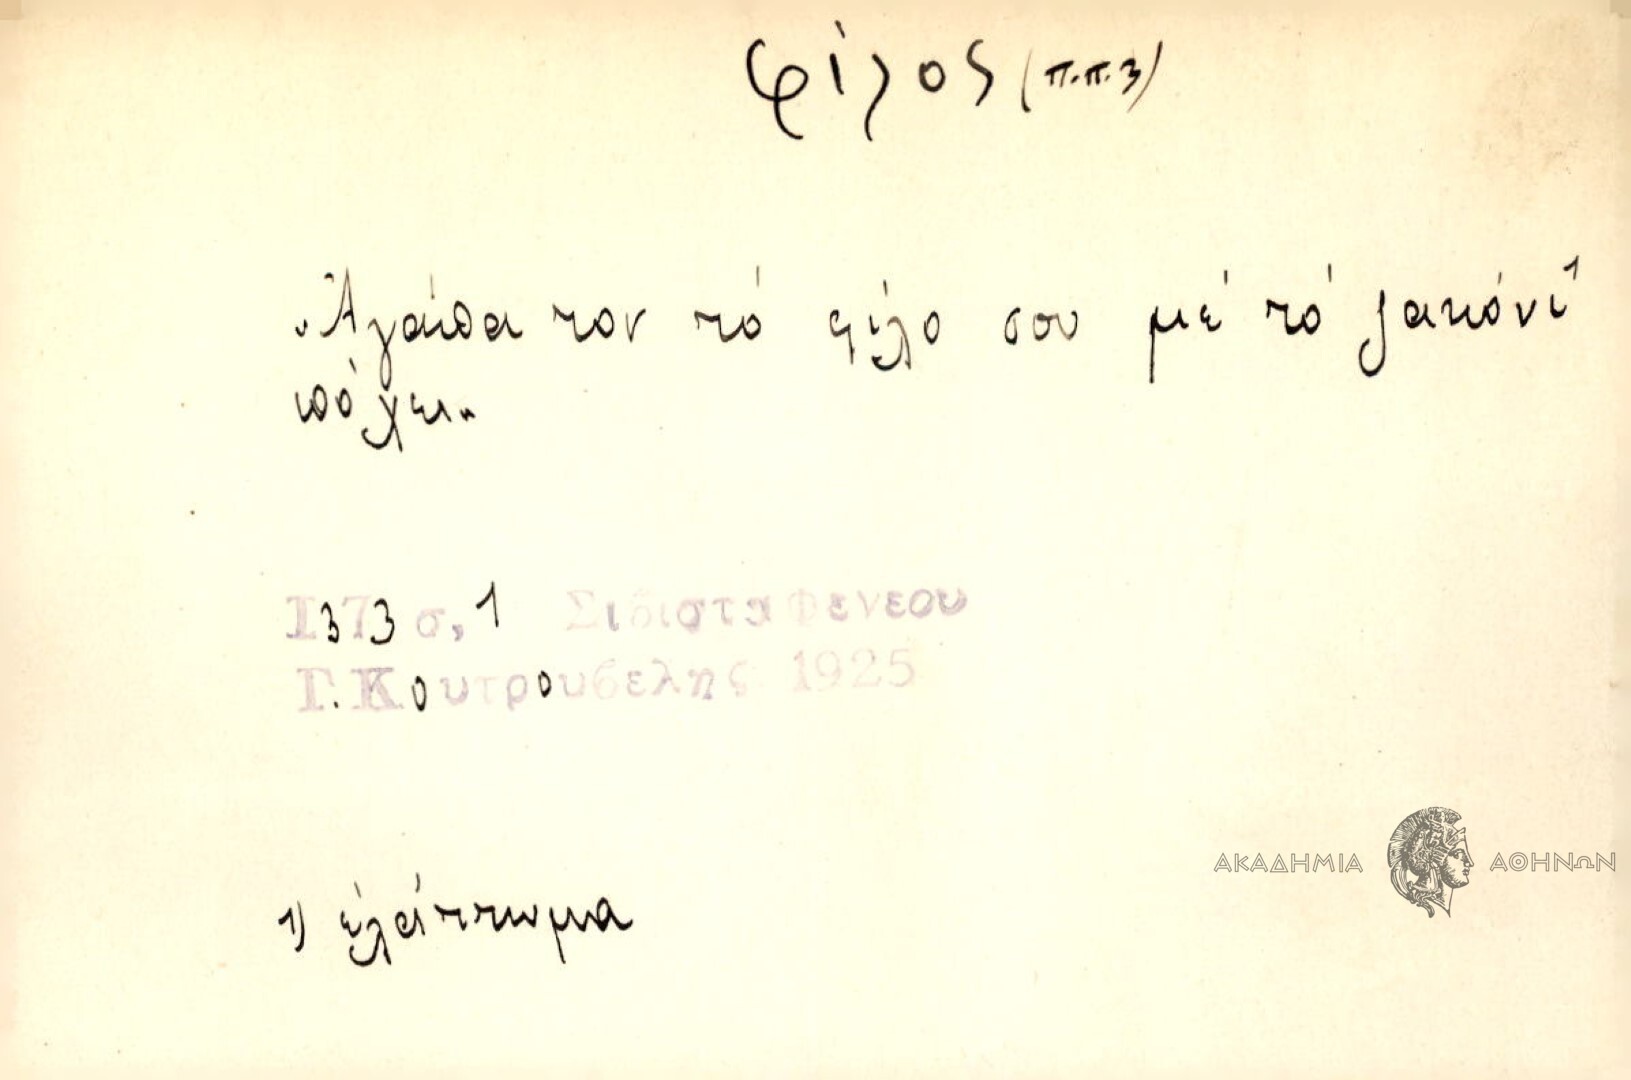 φίλος (π.π.3)
"Ἀγάπα τον τό φίλο σου μέ τό ζακόνι¹
πὄχει"
1373 σ, 1 Σιβιστα Φενεου
Γ. Κουτρουβελης 1925
1) ἐλάττωμα
ΑΚΑΔΗΜΙΑ ΑΘΗΝΩΝ